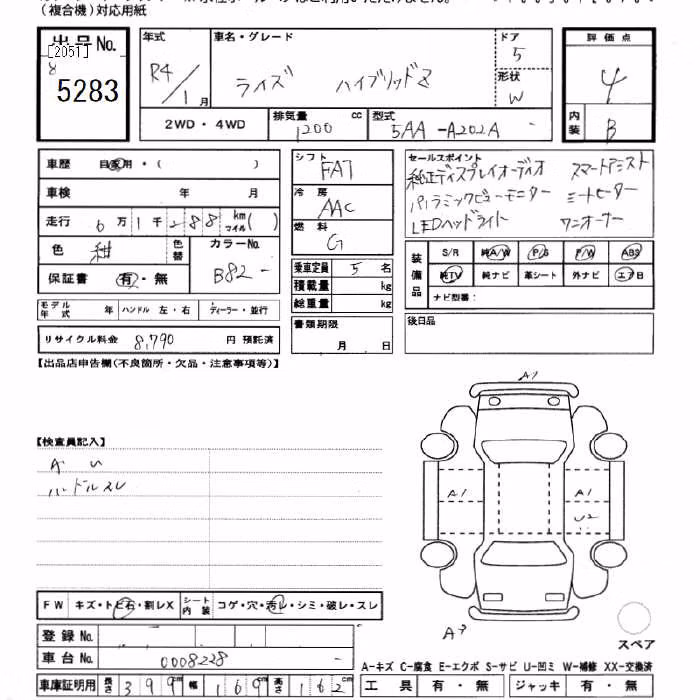 (複合機)対応用紙
出品No.
[2051]
8
5283
年式
R4/1月
車名・グレード
ライズ ハイブリッドZ
ドア
5
形状
W
評価点
4
内装
B
2WD・4WD
排気量
1200 cc
型式
5AA-A202A -
車歴 自家用・( )
車検 年 月
走行 6万1千288 km マイル( )
色 紺 色替
カラーNo.
B82 -
保証書 有・無
モデル年式 年 ハンドル 左・右 ディーラー・並行
リサイクル料金 8,790 円 預託済
シフト
FAT
冷房
AAC
燃料
G
乗車定員 5 名
積載量 kg
総重量 kg
書類期限
月 日
セールスポイント
純正ディスプレイオーディオ スマートアシスト
パノラミックビューモニター シートヒーター
LEDヘッドライト ワンオーナー
装備品
S/R 純A/W P/S P/W ABS
純TV 純ナビ 革シート 外ナビ エアB
ナビ型番:
後日品
【出品店申告欄(不良箇所・欠品・注意事項等)】
【検査員記入】
A U
ハンドルスレ
A1
A1
A1
U2
スペア
FW キズ・トビ石・割レX シート内装 コゲ・穴・汚レ・シミ・破レ・スレ
登録No.
車台No. 0008228 -
車庫証明用 長さ 399 幅 169 高さ 162 cm
A-キズ C-腐食 E-エクボ S-サビ U-凹ミ W-補修 XX-交換済
工具 有・無 ジャッキ 有・無